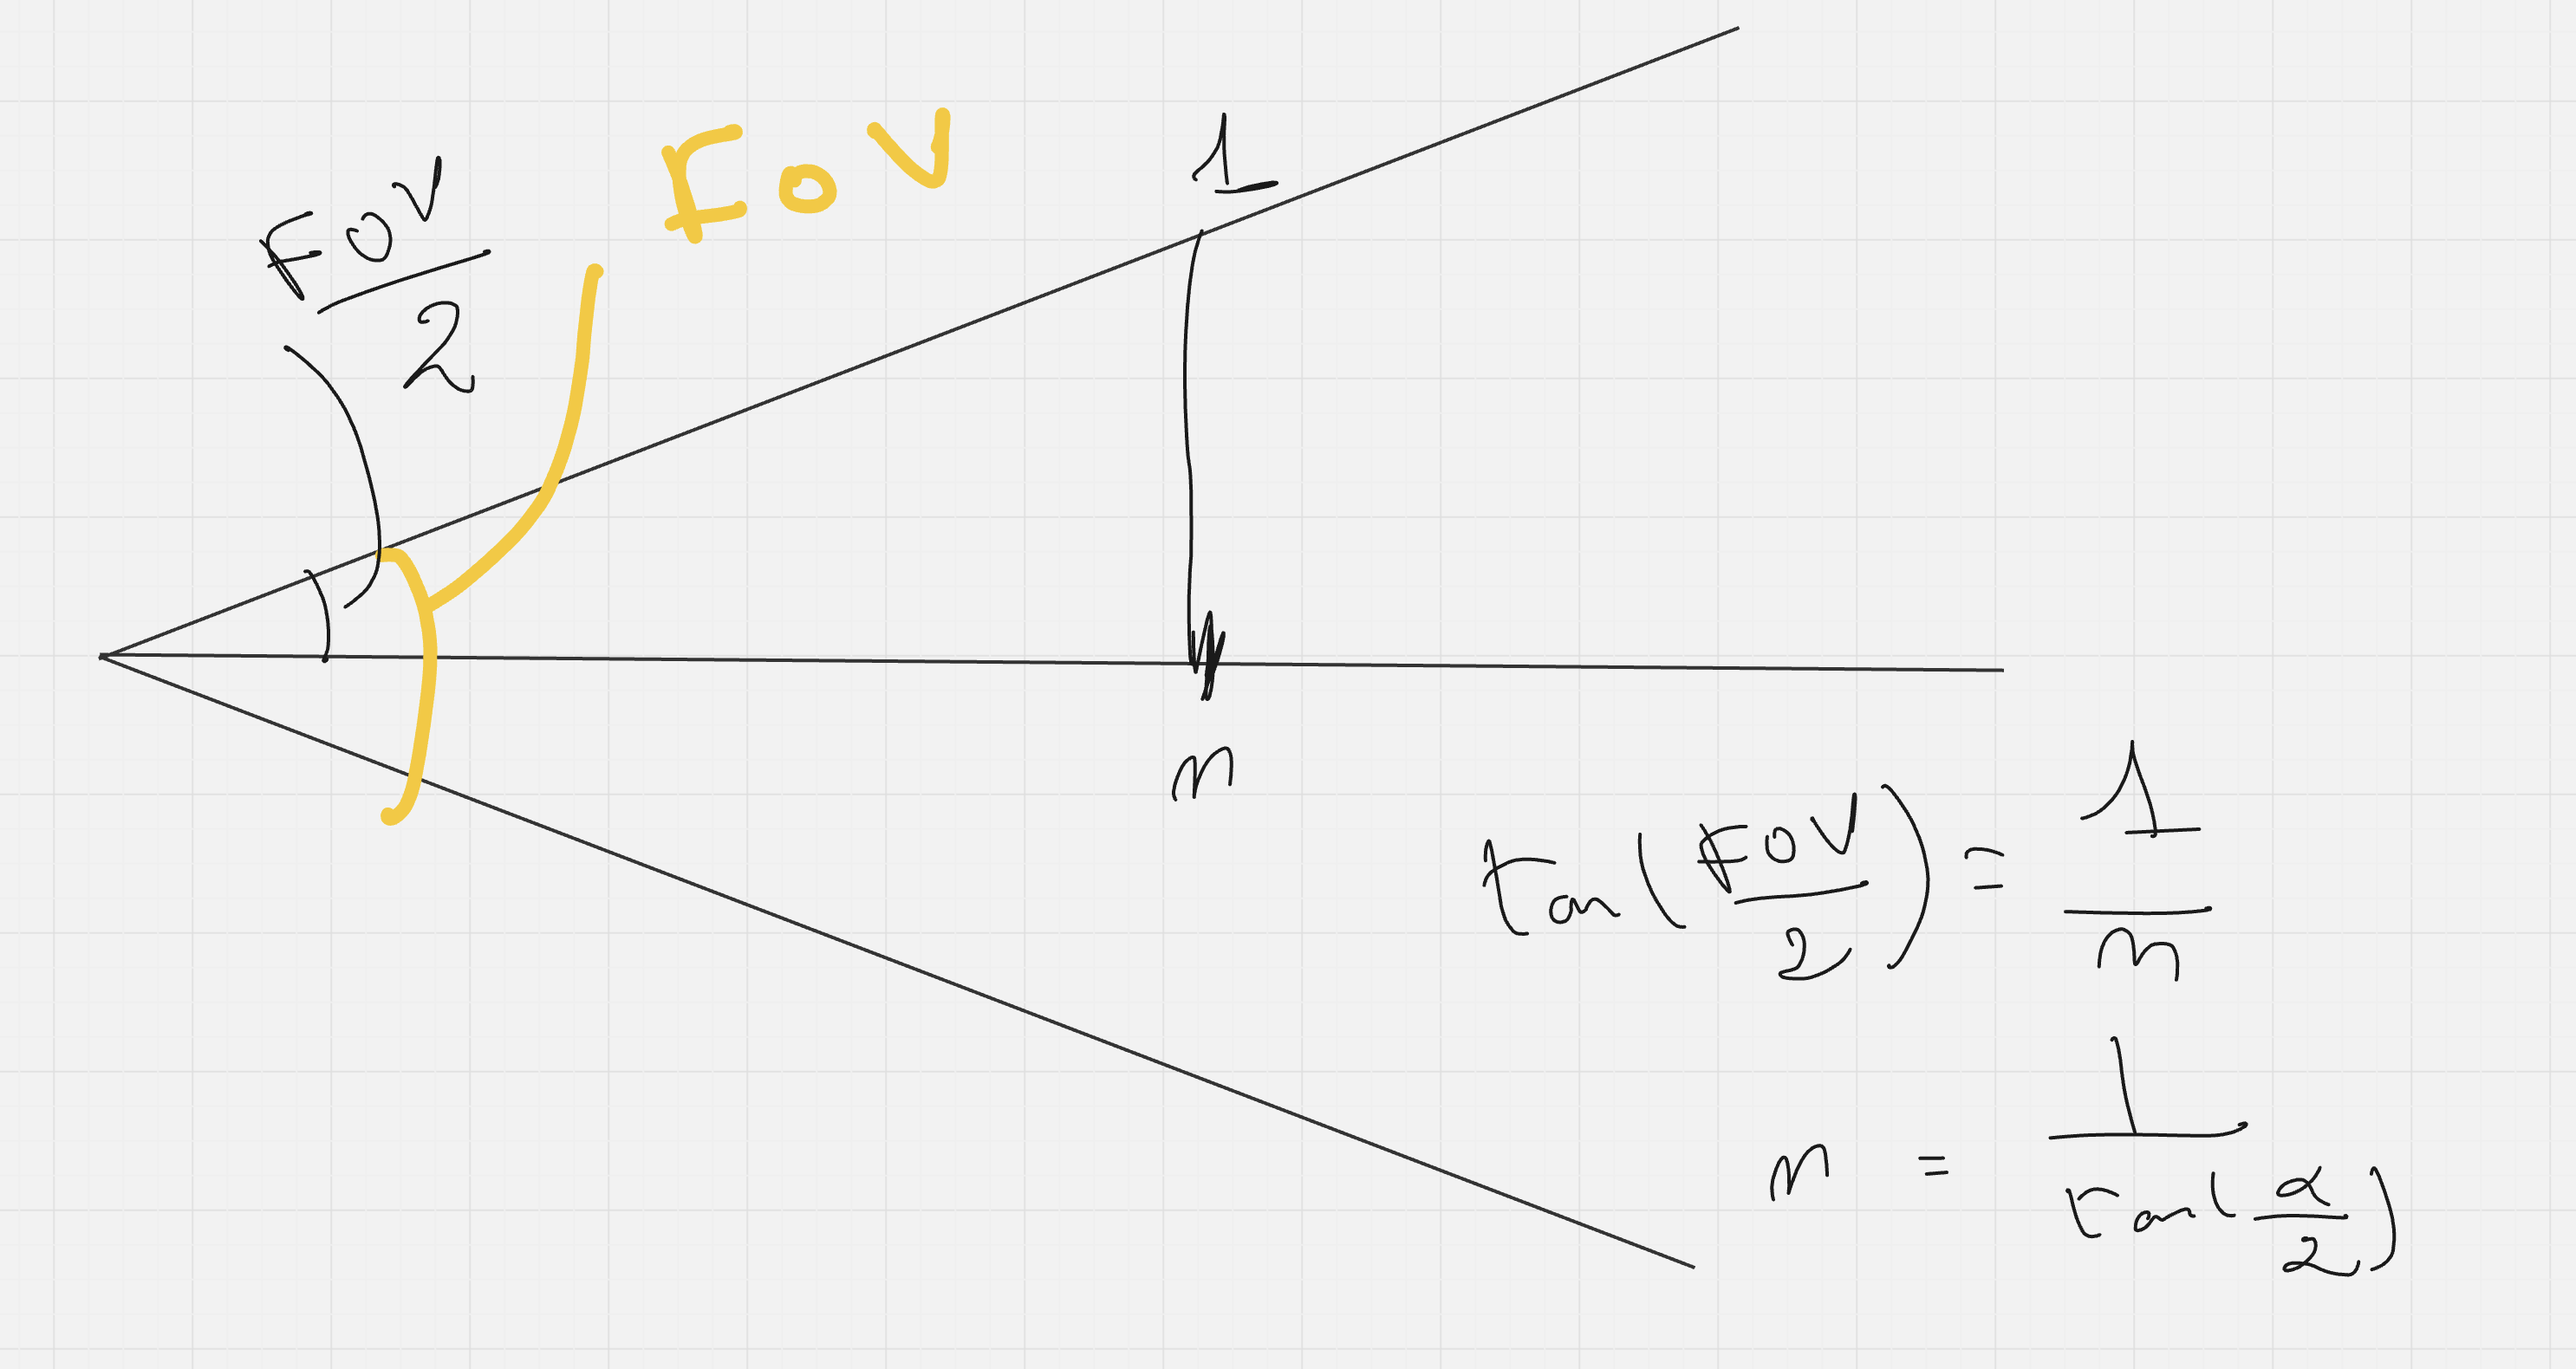 FOV
2
FOV
1
n
tan(FOV/2) = 1/n
n = 1/tan(α/2)